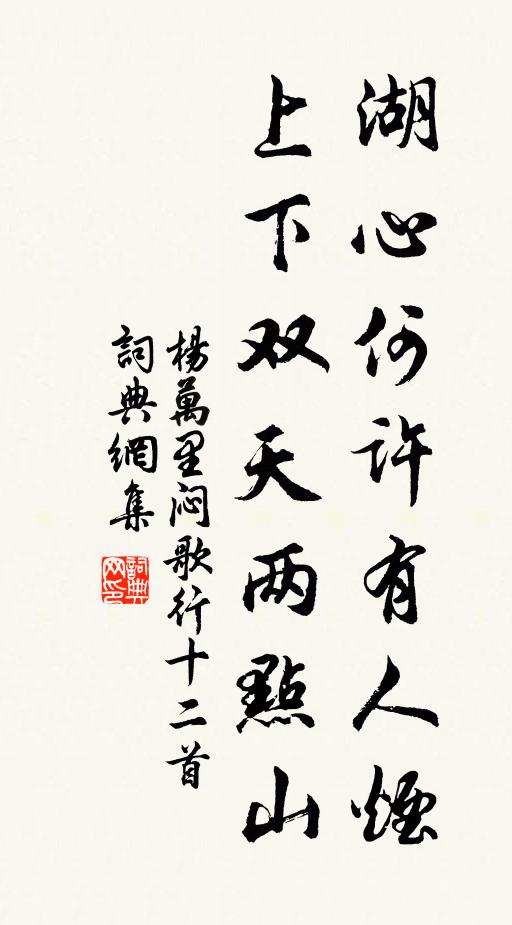 湖心何许有人煙
上下双天两點山
楊萬里闷歌行十二首
詞典網集
詞典网印